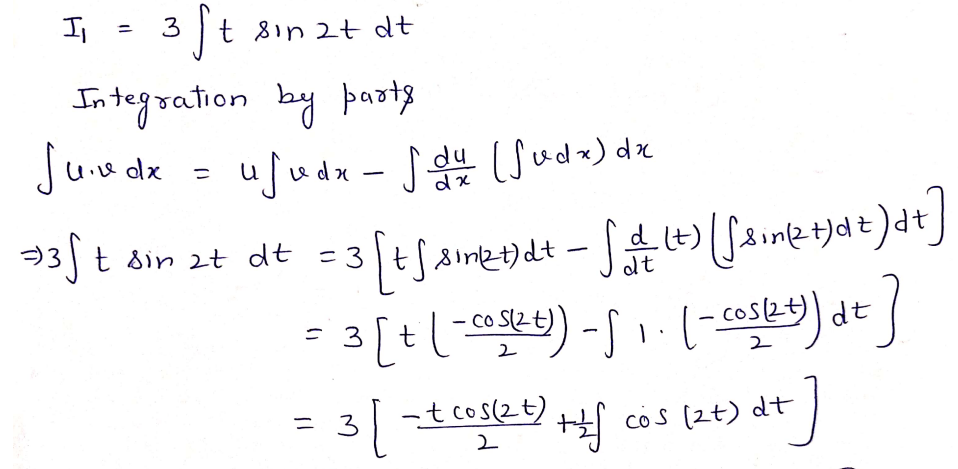 I₁ = 3 ∫ t sin 2t dt
Integration by parts
∫ u.v dx = u ∫ v dx − ∫ du/dx (∫ v dx) dx
⇒ 3 ∫ t sin 2t dt = 3 [ t ∫ sin(2t) dt − ∫ d/dt (t) (∫ sin(2t) dt) dt ]
= 3 [ t ( −cos(2t)/2 ) − ∫ 1 · ( −cos(2t)/2 ) dt ]
= 3 [ −t cos(2t)/2 + 1/2 ∫ cos (2t) dt ]